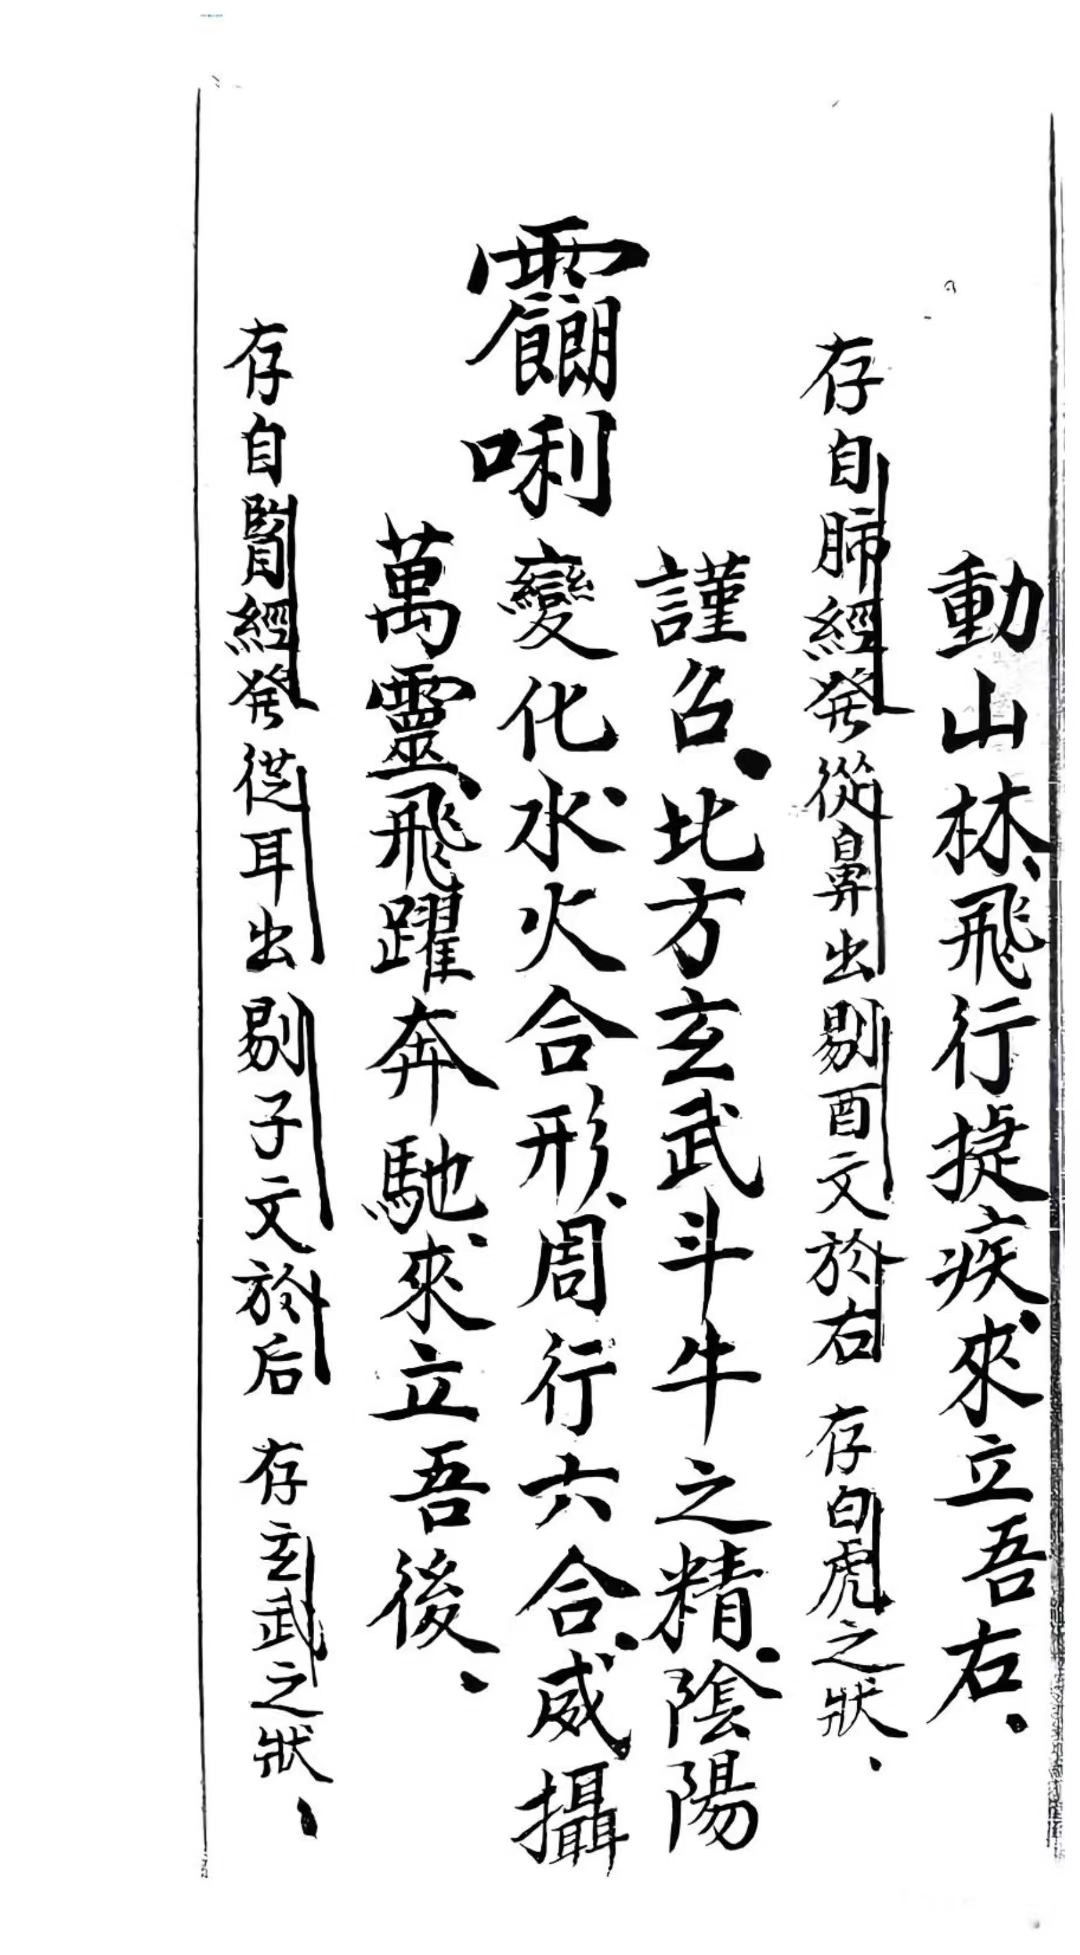 動山林飛行捷疾來立吾右
存自肺經発從鼻出剔酉文於右 存白虎之狀
謹召北方玄武斗牛之精陰陽
唎變化水火合形周行六合威攝
萬靈飛躍奔馳來立吾後
存自腎經発從耳出剔子文於后 存玄武之狀